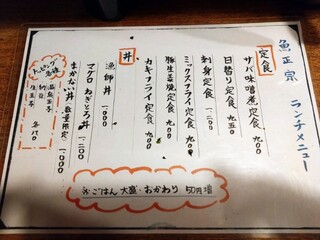 魚正宗 ランチメニュー
定食
サバ味噌煮定食 九〇〇
日替り定食 九五〇
刺身定食 一二〇〇
ミックスフライ定食 九〇〇
豚生姜焼定食 九〇〇
カキフライ定食 九〇〇
丼
漁師丼 一〇〇〇
マグロねぎとろ丼 一二〇〇
まかない丼 数量限定 一〇〇〇
トッピング
温泉玉子
納豆
生玉子
各八〇
※ごはん 大盛・おかわり 50円増